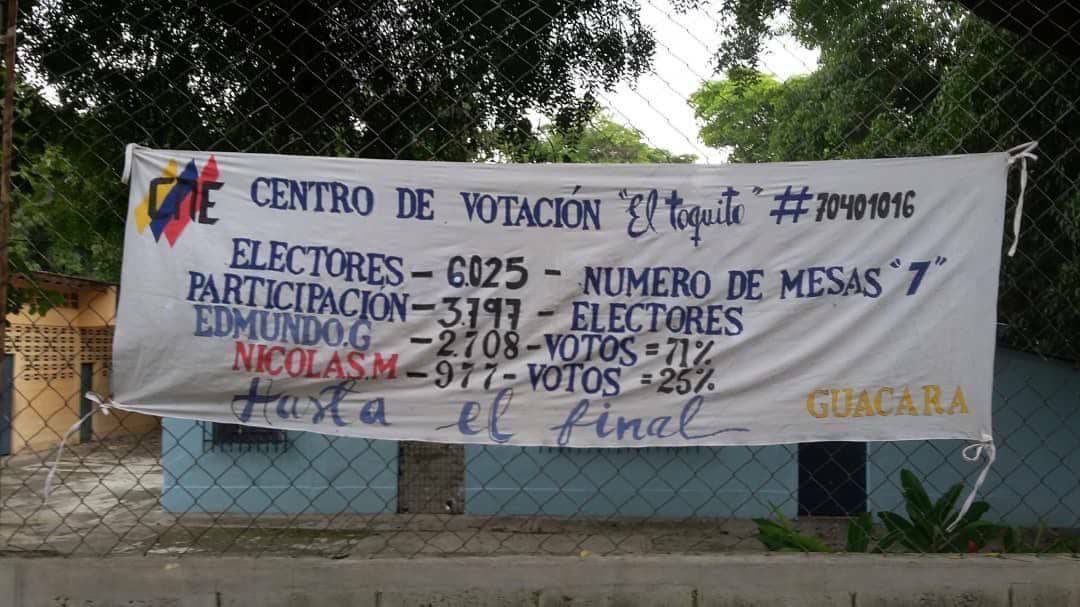 CNE CENTRO DE VOTACIÓN "El toquito" #70401016
ELECTORES - 6.025 - NUMERO DE MESAS "7"
PARTICIPACION - 3.797 - ELECTORES
EDMUNDO.G - 2.708 - VOTOS = 71%
NICOLAS.M - 977 - VOTOS = 25%
Hasta el final
GUACARA